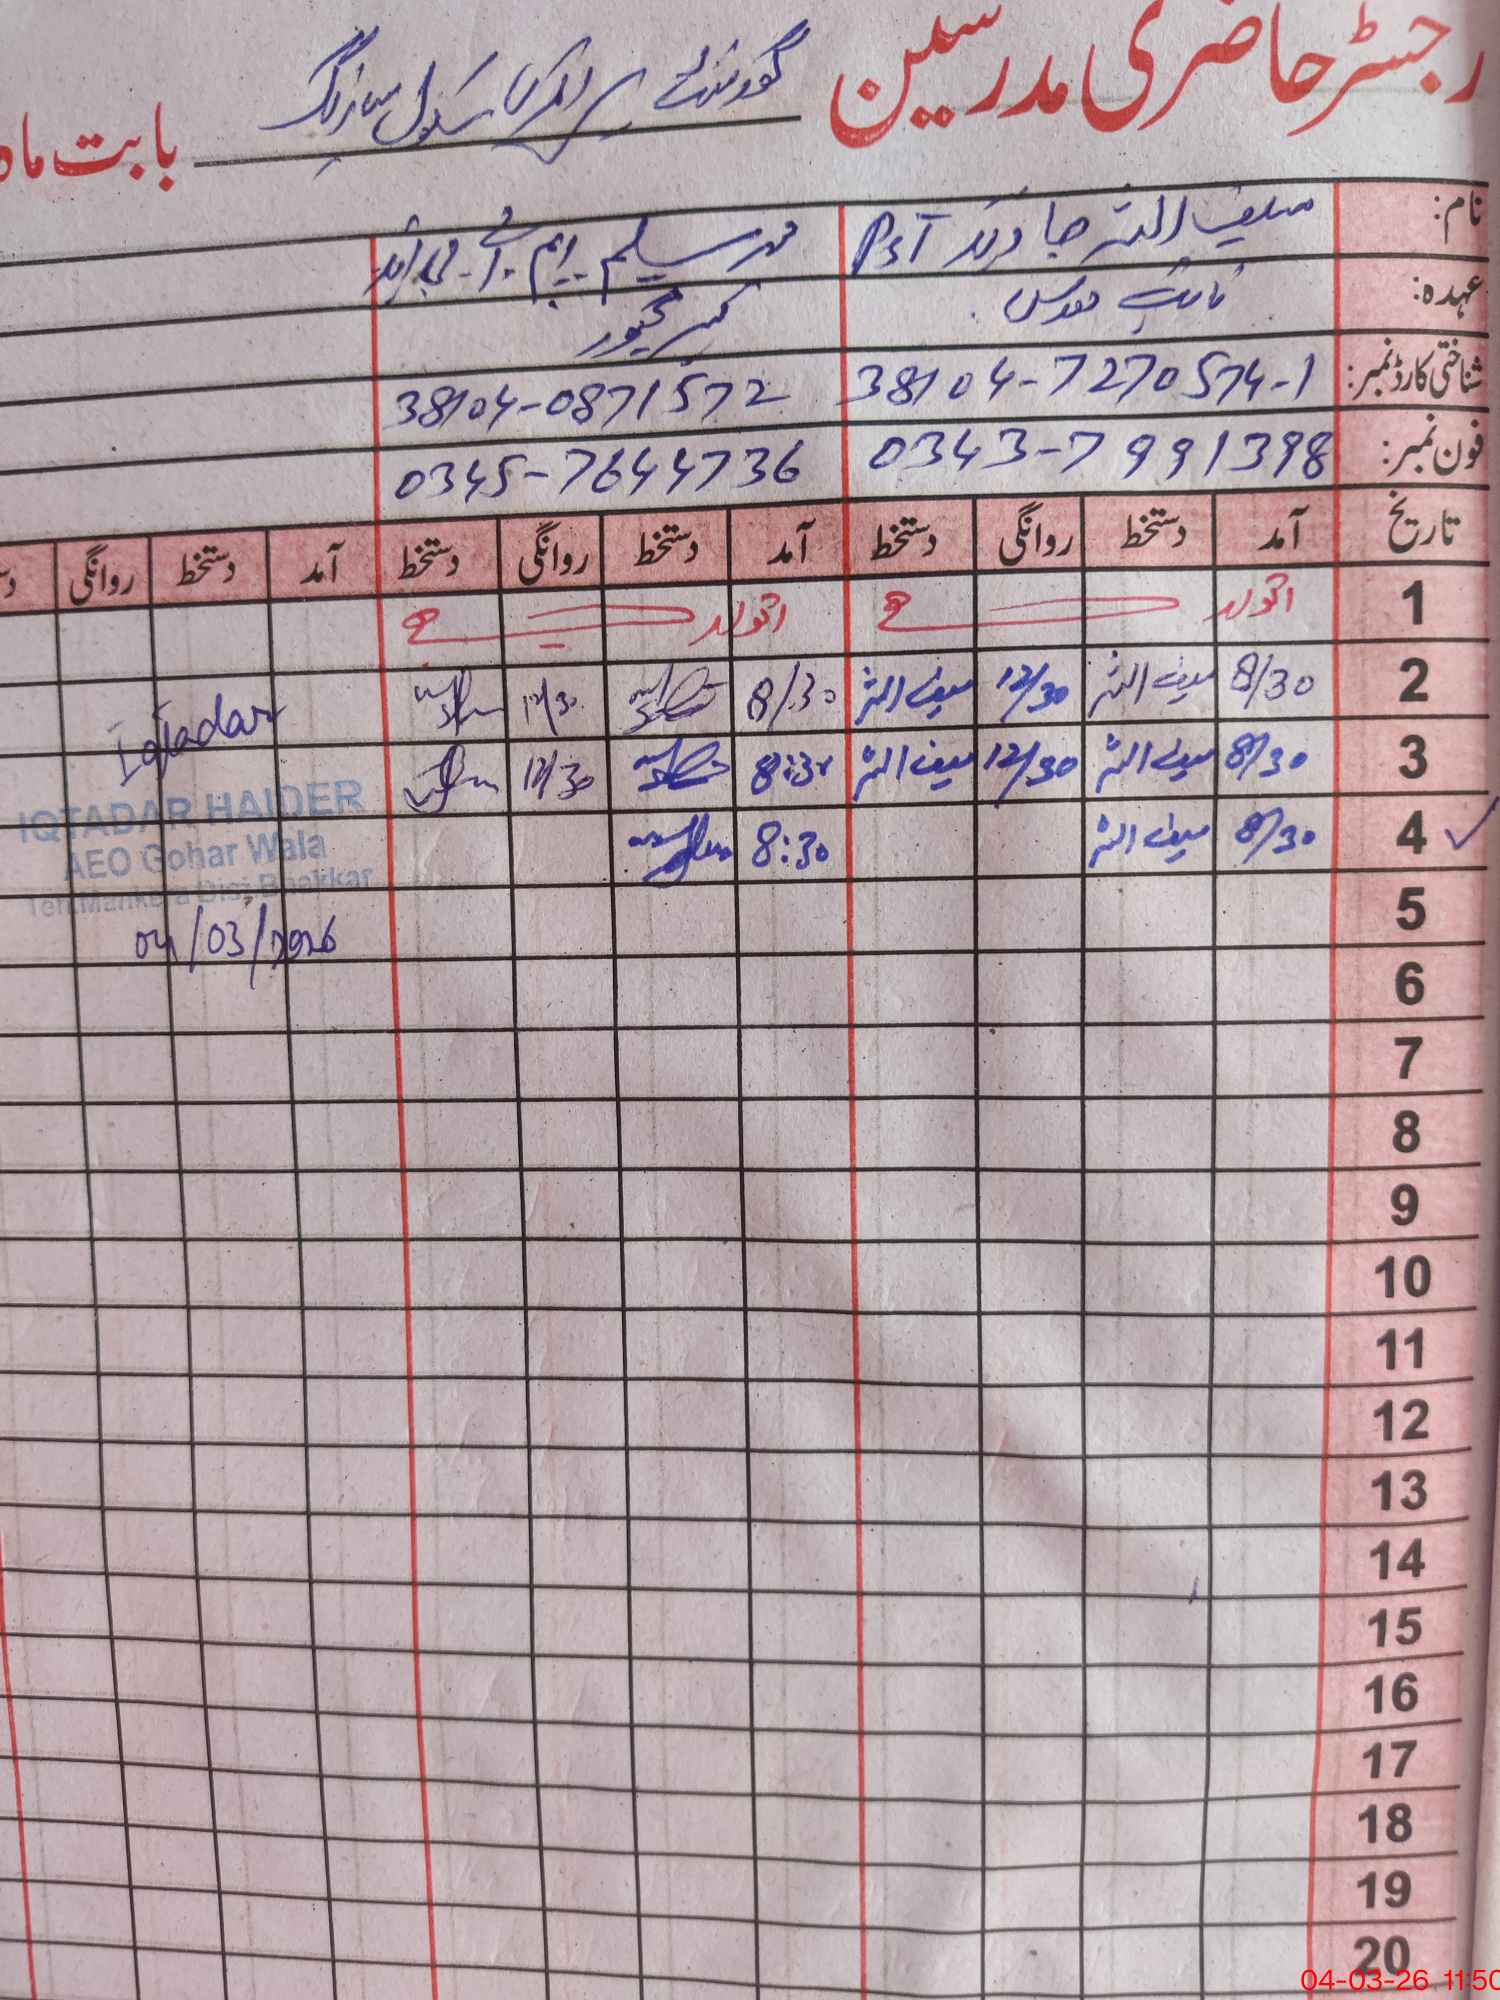 رجسٹر حاضری مدرسین گورنمنٹ پرائمری سکول بابت ماہ
نام: سیف اللہ PST محمد سلیم ایم۔اے۔
عہدہ: نائب مدرس
شناختی کارڈ نمبر: 38104-7270574-1 38104-0871572
فون نمبر: 0343-7991398 0345-7644736
تاریخ آمد دستخط روانگی دستخط آمد دستخط روانگی دستخط آمد دستخط روانگی
1 اتوار اتوار
2 8/30 سیف اللہ 12/30 سیف اللہ 8/30 12/30
3 8/30 سیف اللہ 12/30 سیف اللہ 8:30 12/30
4 8/30 سیف اللہ 8:30
Iqtadar
IQTADAR HAIDER
AEO Gohar Wala
Teh:Mankera Dist Bhakkar
04/03/2026
5
6
7
8
9
10
11
12
13
14
15
16
17
18
19
20
04-03-26 11:50